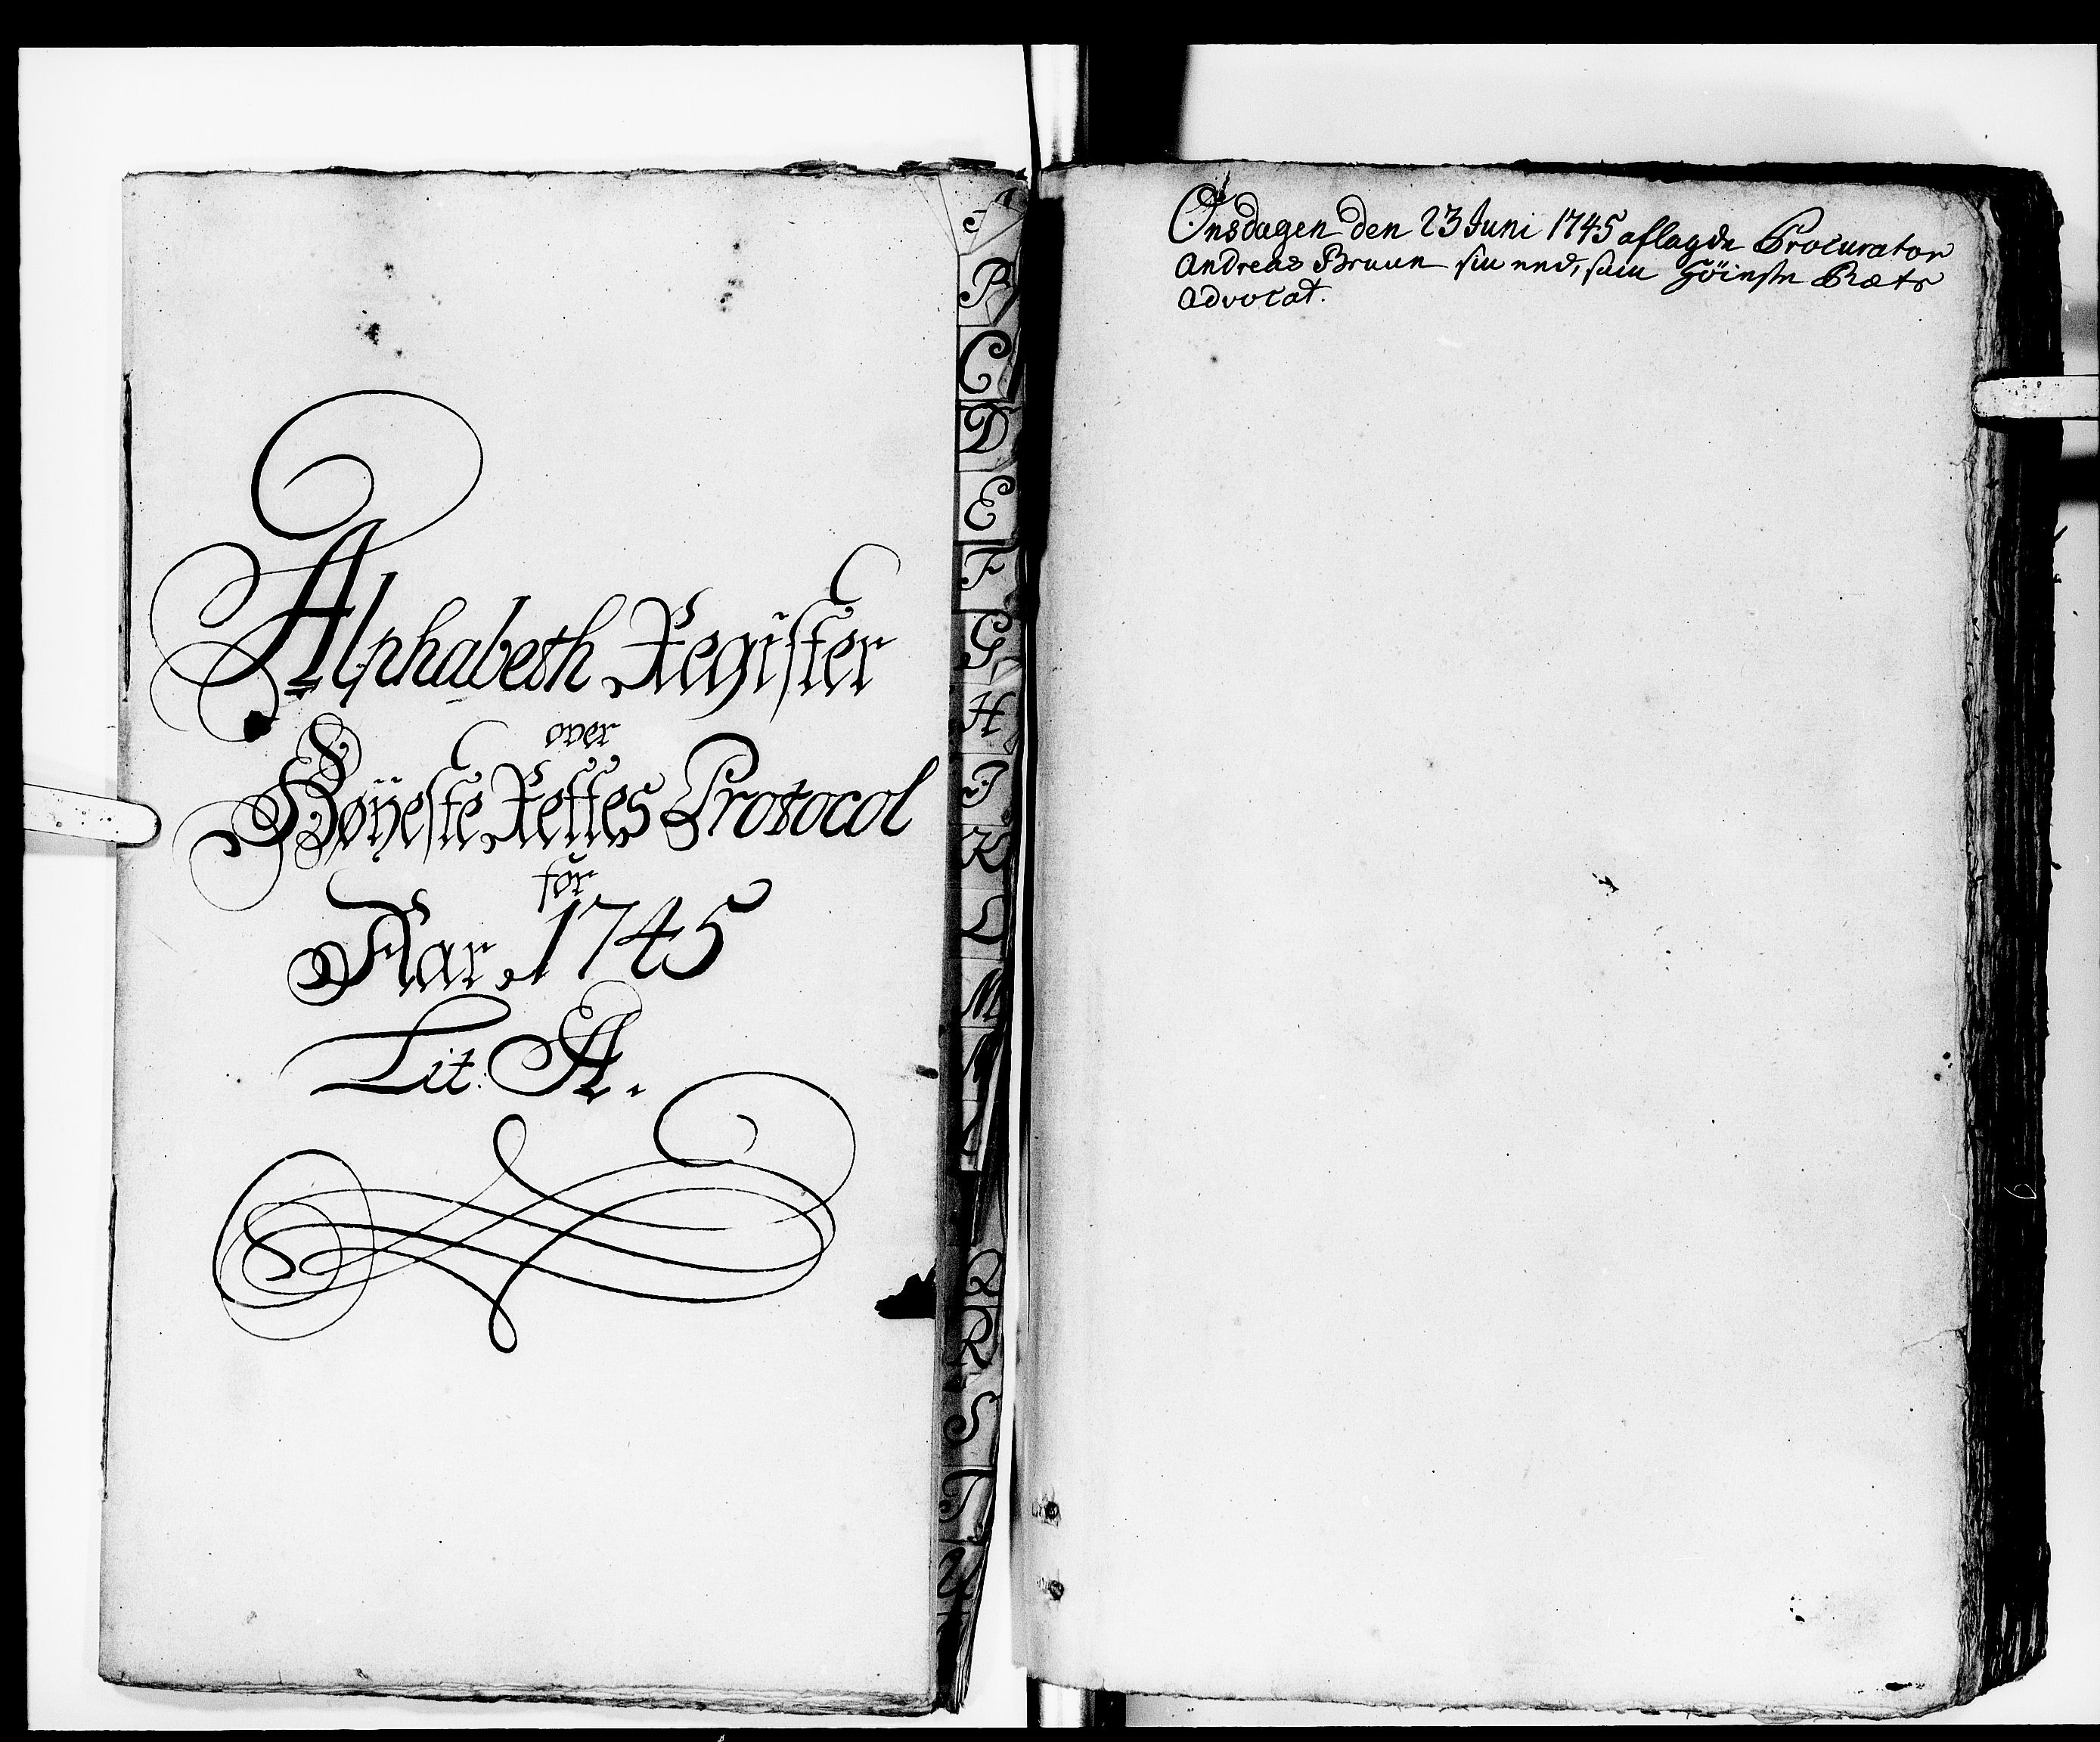 Alphabeth Register
over
Høyeste Rettes Protocol
for
Aar 1745
Lit: A.
A
B
C
D
E
F
G
H
I
K
L
M
R
S
T
Onsdagen den 23 Juni 1745 aflagde Procurator
Andreas Bruun sin eed, som Höieste Ræts
Advocat.